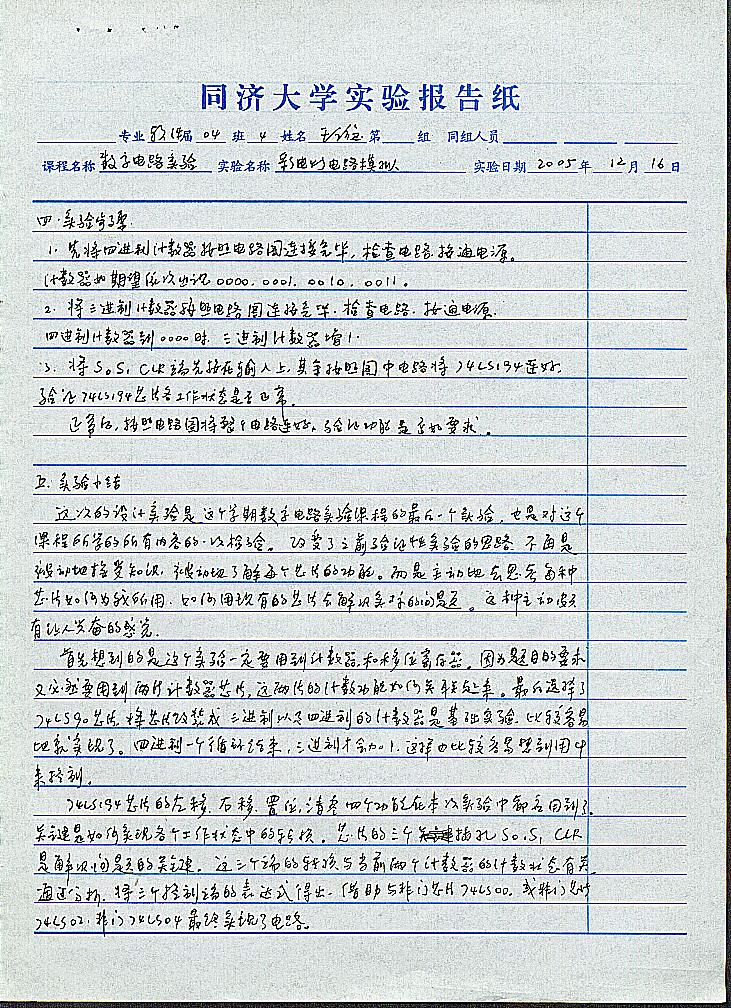 同济大学实验报告纸
专业 软件 届 04 班 4 姓名 第 组 同组人员
课程名称 数字电路实验 实验名称 彩电灯电路模拟 实验日期 2005 年 12 月 16 日
四.实验步骤
1. 先将四进制计数器按照电路图连接完毕,检查电路.接通电源。
计数器如期望依次出现0000,0001,0010,0011。
2. 将三进制计数器按照电路图连接完毕.检查电路.接通电源.
四进制计数器到0000时.三进制计数器增1.
3. 将S0 S1 CLR端先接在输入上,其余按照图中电路将74LS194连好
验证74LS194芯片各工作状态是否正常。
正常后,按照电路图将整个电路连好,验证功能是否如要求。
五.实验小结
这次的设计实验是这个学期数字电路实验课程的最后一个实验,也是对这个
课程所学的所有内容的一次检验。改变了之前验证性实验的思路.不再是
被动地接受知识,被动地了解每个芯片的功能。而是主动地去思考每种
芯片如何为我所用.如何用现有的芯片去解决实际的问题。这种主动颇
有让人兴奋的感觉.
首先想到的是这个实验一定要用到计数器和移位寄存器。因为题目的要求
又必然要用到两片计数器芯片,这两片的计数功能如何关联起来。最后选择了
74LS90芯片将芯片改装成三进制以及四进制的计数器是基础实验.比较容易
地就实现了。四进制一个循环结束,三进制才会加1.这样也比较容易想到用
来控制.
74LS194芯片的左移.右移.置位,清零四个功能在本次实验中都会用到了.
关键是如何实现各个工作状态中的转换。芯片的三个插孔S0.S1 CLR
是解决问题的关键。这三个端的转换与当前两个计数器的计数状态有关.
通过分析.将三个控制端的表达式得出.借助与非门芯片74LS00.或非门芯片
74LS02.非门74LS04最终实现了电路。